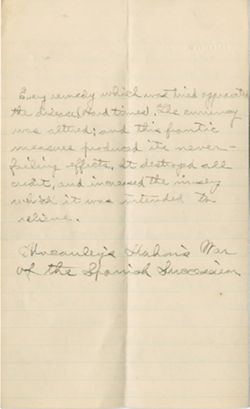 Every remedy which was tried aggravated
the disease (Hard times). The currency
was altered; and this frantic
measure produced its never-
failing effects. It destroyed all
credit, and increased the misery
which it was intended to
relieve.
Macauley's Mahon's War
of the Spanish Succession